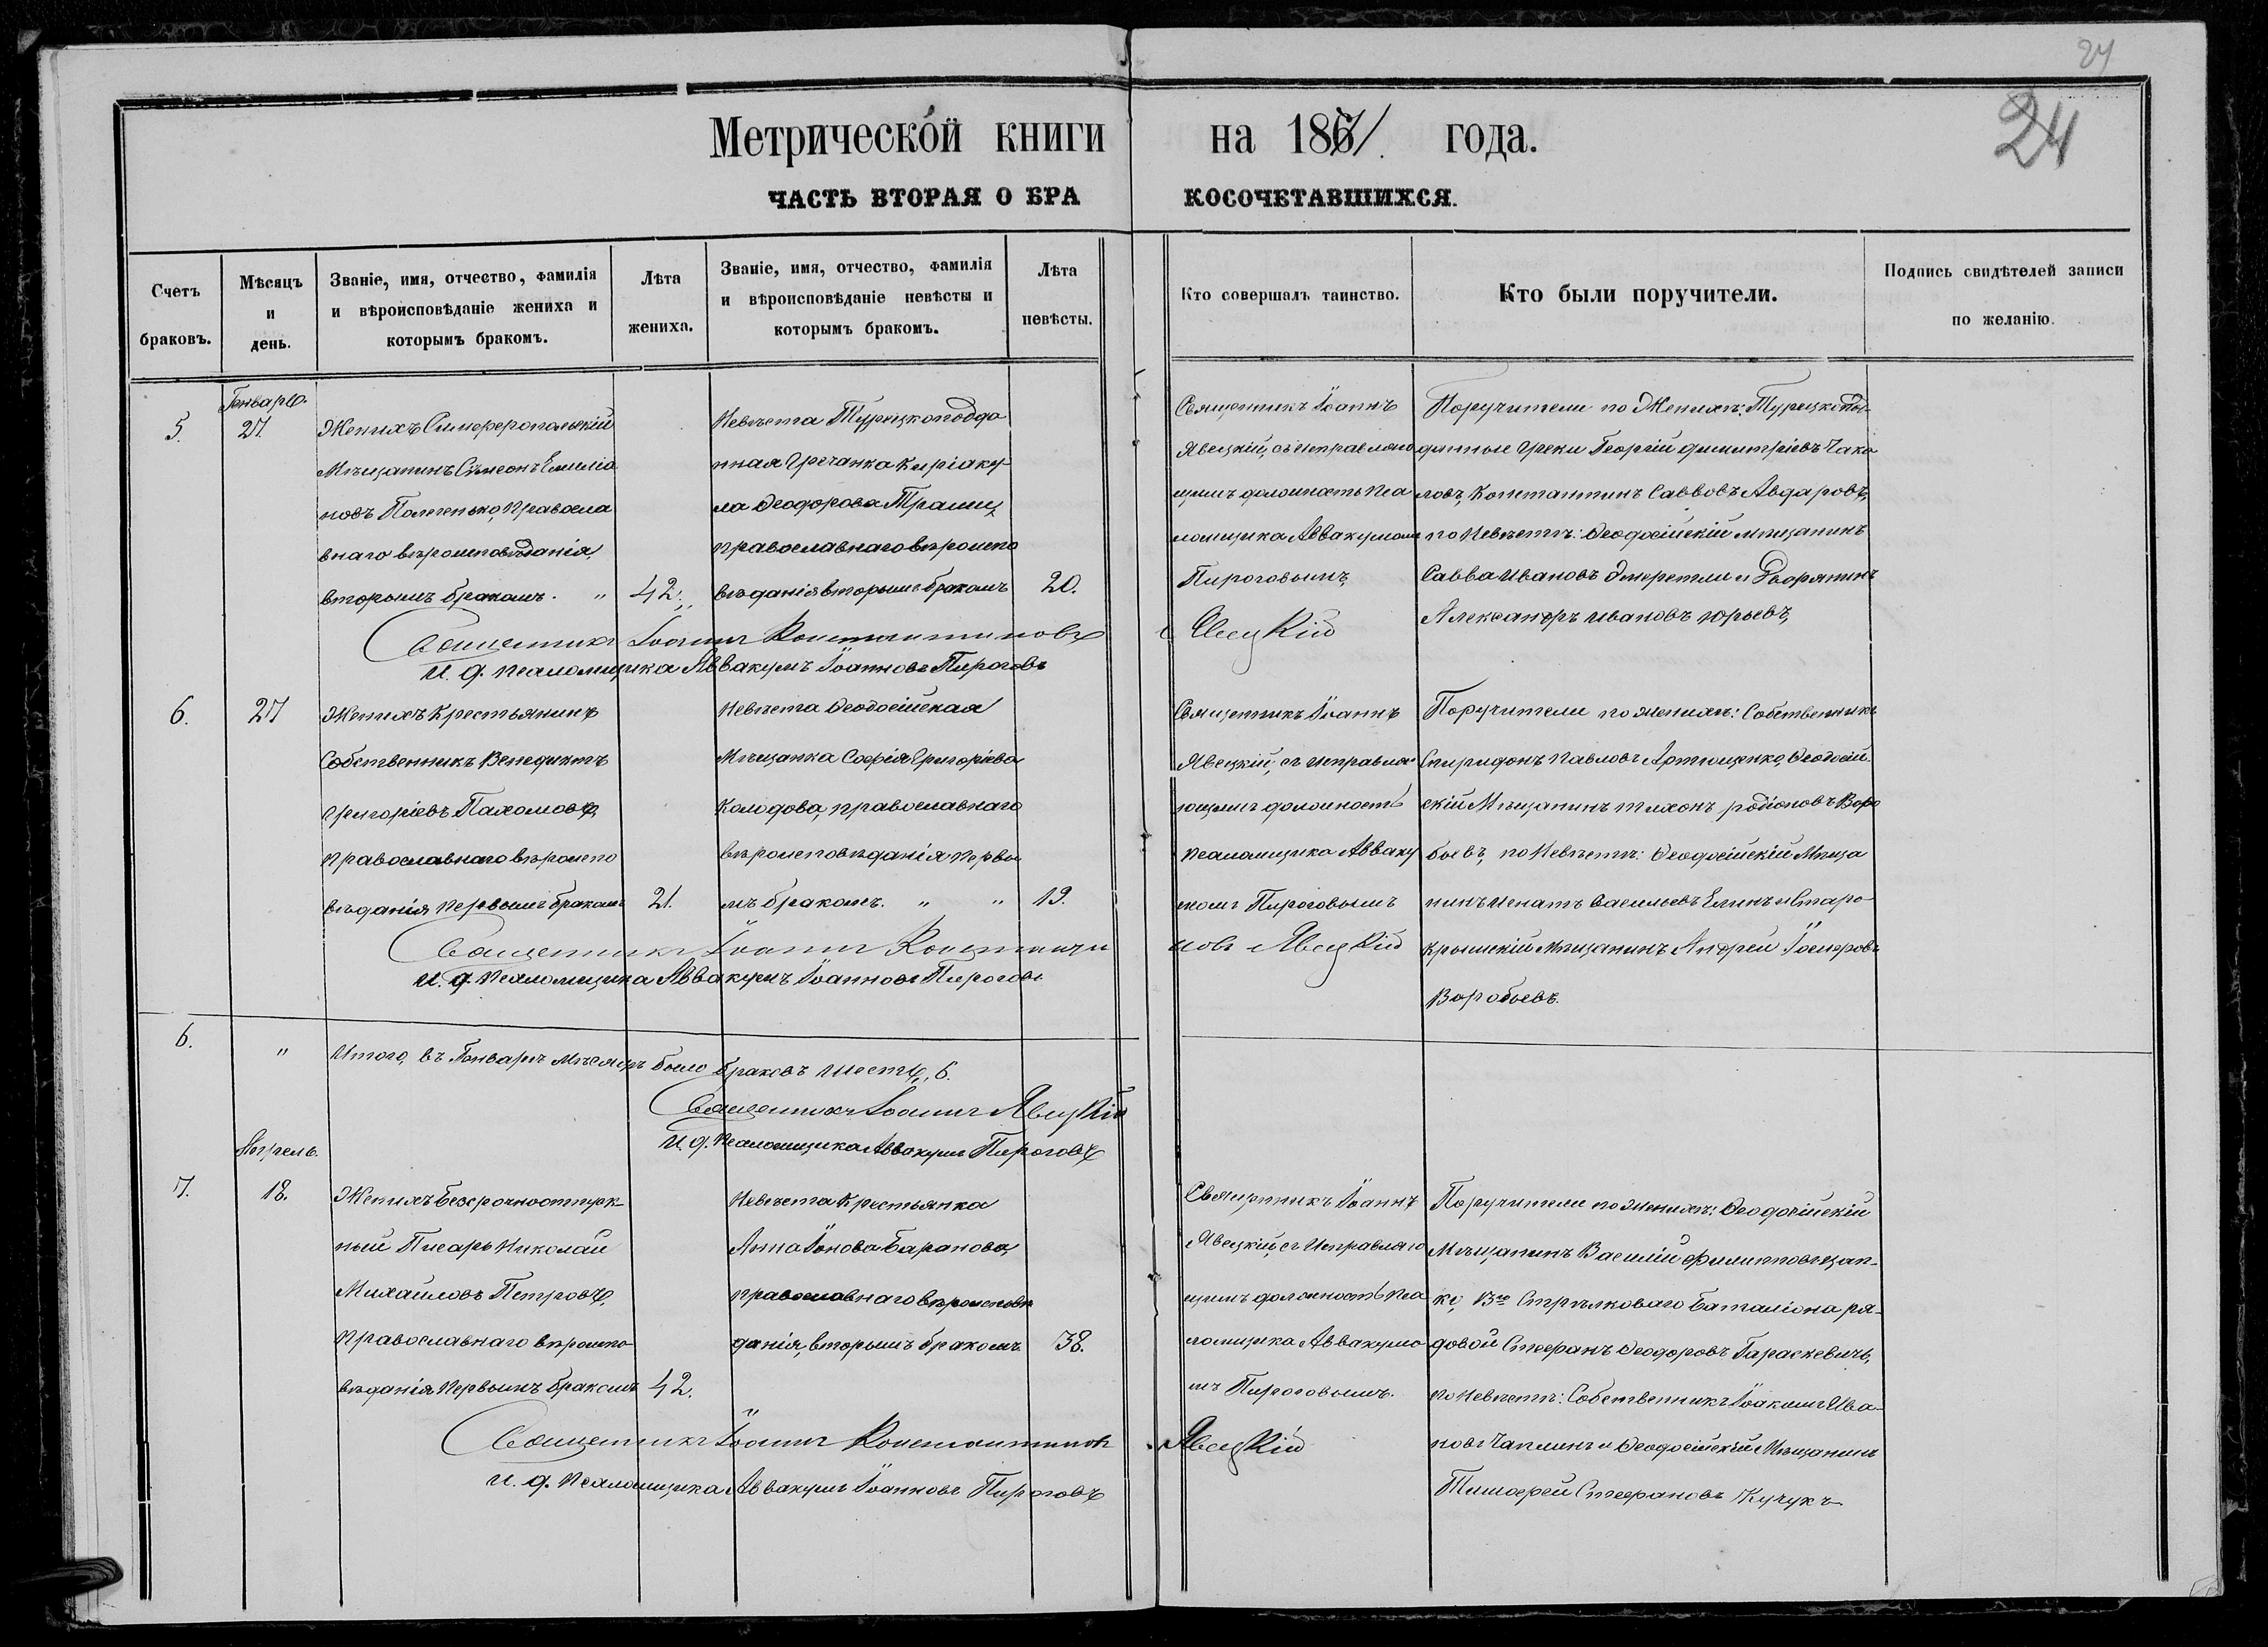 24
24
Метрической книги на 1871 года.
ЧАСТЬ ВТОРАЯ О БРАКОСОЧЕТАВШИХСЯ.
Счетъ браковъ.
Мѣсяцъ и день.
Званіе, имя, отчество, фамилія и вѣроисповѣданіе жениха и которымъ бракомъ.
Лѣта жениха.
Званіе, имя, отчество, фамилія и вѣроисповѣданіе невѣсты и которымъ бракомъ.
Лѣта невѣсты.
Кто совершалъ таинство.
Кто были поручители.
Подпись свидѣтелей записи по желанію.
Генварь.
5.
27.
Женихъ Симферопольскій
Мѣщанинъ Сѵмеонъ Емилiа
новъ Полегенько, Правосла
внаго вѣроисповѣданія,
вторымъ бракомъ. "
42.
Невѣста Турецкоподда
нная Гречанка Киріаку
ла Ѳеодорова
православнаго вѣроиспо
вѣданія вторымъ бракомъ
20.
Священникъ Іоаннъ
Явецкій, съ исправляю
щимъ должность Пса
ломщика Аввакумомъ
Пироговымъ,
Поручители по Женихѣ: Турецкопод-
данные Греки Георгій Димитріевъ Чако
ловъ, Константинъ Саввовъ Авдаровъ,
по Невѣстѣ: Ѳеодосійскій мѣщанинъ
Савва Ивановъ и Дворянинъ
Александръ Ивановъ Юрьевъ,
Священникъ Іоаннъ Константиновъ Явецкій
И. д. псаломщика Аввакумъ Іоанновъ Пироговъ
6.
27
Женихъ Крестьянинъ
Собственникъ Венедиктъ
Григоріевъ Пахомовъ,
Православнаго вѣроиспо
вѣданія первымъ бракомъ
21.
Невѣста Ѳеодосійская
Мѣщанка Софія Григоріева
Колодова, православнаго
вѣроисповѣданія первы
мъ бракомъ. " "
19.
Священникъ Іоаннъ
Явецкій, съ исправля
ющимъ должность
псаломщика Авваку
момъ Пироговымъ
Поручители по женихѣ: Собственникъ
Спиридонъ Павловъ Артющенко, Ѳеодосій-
скій Мѣщанинъ Тихонъ Родіоновъ Воро
бьевъ, по Невѣстѣ: Ѳеодосійскій Мѣща
нинъ Игнатъ Васильевъ Елинъ и Старо-
крымскій Мѣщанинъ Андрей Іосифовъ
Воробьевъ.
Священникъ Іоаннъ Константиновъ Явецкій
И. д. Псаломщика Аввакумъ Іоанновъ Пироговъ
6.
" Итого, въ Генварѣ Мѣсяцѣ было браковъ шесть, 6.
Священникъ Іоаннъ Явецкій
И. д. Псаломщика Аввакумъ Пироговъ
Апрель.
7.
18.
Женихъ Безсрочноотпуск-
ный Писарь Николай
Михайловъ Петровъ,
Православнаго вѣроиспо-
вѣданія первымъ бракомъ
42.
Невѣста Крестьянка
Анна Іонова Баранова,
православнаго вѣроисповѣ
данія, вторымъ бракомъ
38.
Священникъ Іоаннъ
Явецкій, съ Исправляю
щимъ должность Пса
ломщика Аввакумо
мъ Пироговымъ.
Поручители по женихѣ: Ѳеодосійскій
Мѣщанинъ Василій Филипповъ
13го Стрѣлковаго Баталіона ря-
довой Стефанъ Ѳеодоровъ Гараскевичъ,
по Невѣстѣ: Собственникъ Іоакимъ Ива-
новъ Чаплинъ и Ѳеодосійскій Мѣщанинъ
Тимофей Стефановъ Кучукъ.
Священникъ Іоаннъ Константиновъ Явецкій
И. д. Псаломщика Аввакумъ Іоанновъ Пироговъ